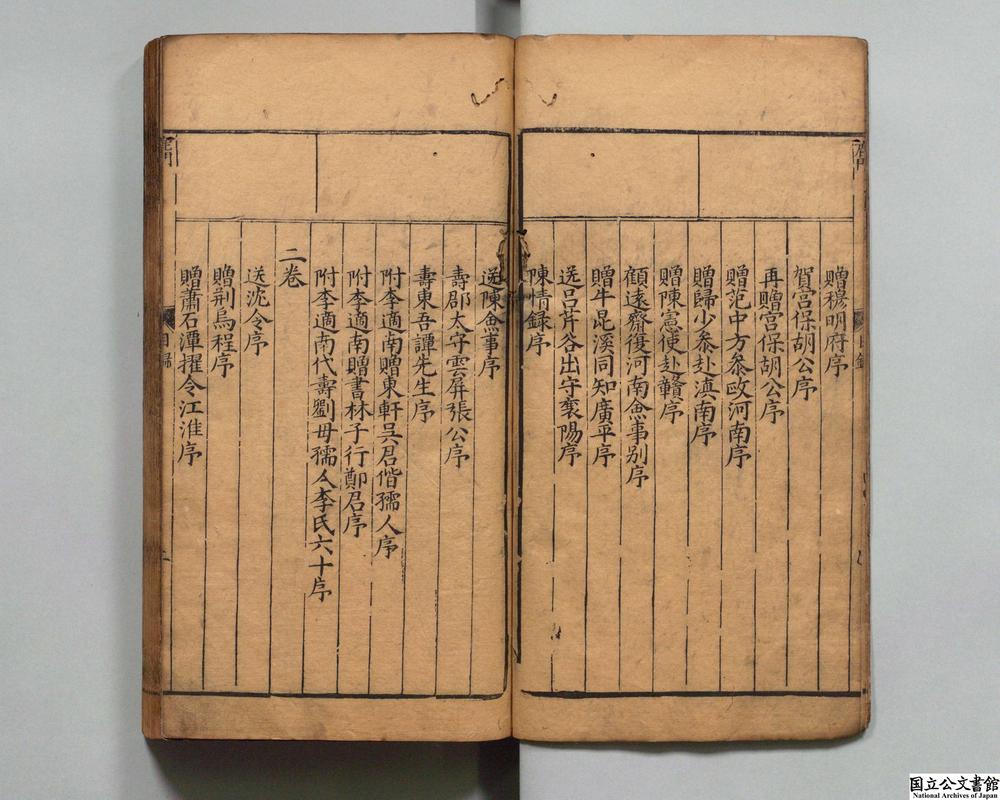 贈穆明府序
賀宫保胡公序
再贈宫保胡公序
贈范中方叅政河南序
贈歸少叅赴滇南序
贈陳憲使赴贛序
顧遠齋復河南僉事别序
贈牛昆溪同知廣平序
送吕芹谷出守襄陽序
陳情録序
送陳僉事序
壽郡太守雲屏張公序
壽東吾譚先生序
附李適南贈東軒吴君偕孺人序
附李適南贈書林子行鄭君序
附李適南代壽劉母孺人李氏六十序
二卷
送沈令序
贈荆烏程序
贈蕭石潭擢令江淮序
目錄
国立公文書館
National Archives of Japan